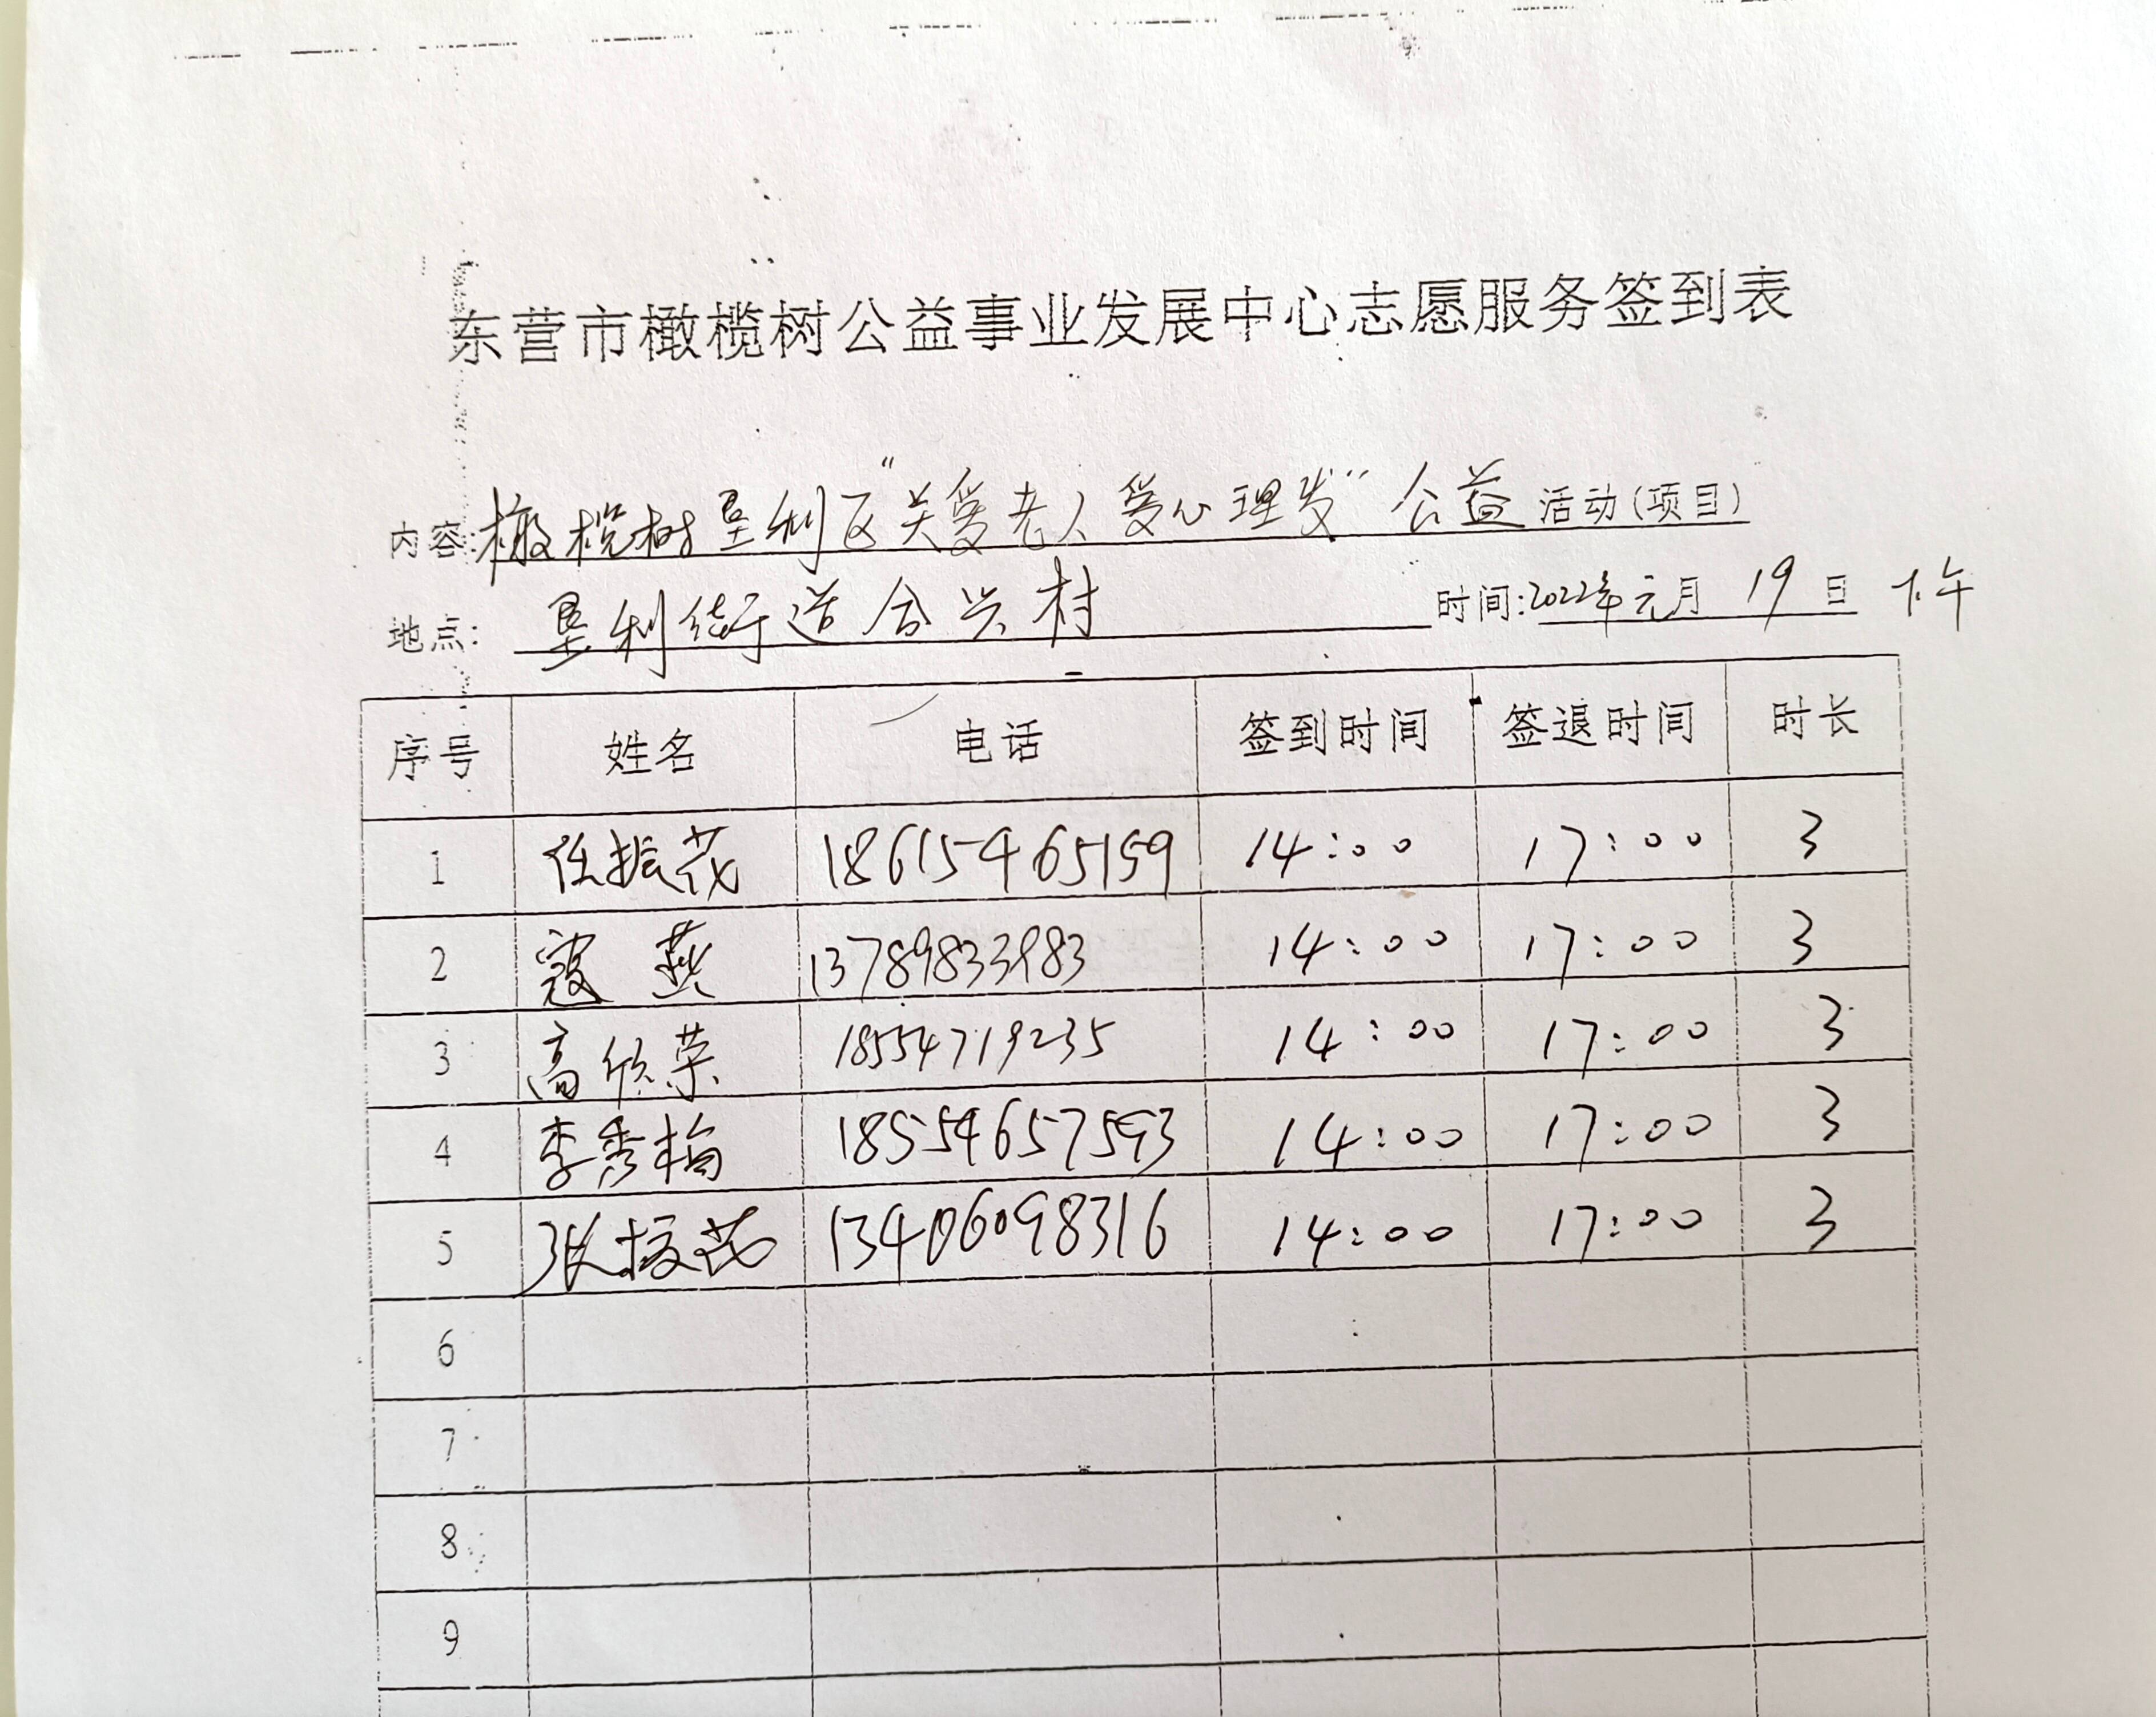 东营市橄榄树公益事业发展中心志愿服务签到表
内容:橄榄树垦利区"关爱老人爱心理发"公益活动(项目)
地点: 垦利街道合兴村 时间:2022年元月19日 下午
序号 姓名 电话 签到时间 签退时间 时长
1 任振花 18615465159 14:00 17:00 3
2 寇燕 13789833983 14:00 17:00 3
3 高欣荣 18554719235 14:00 17:00 3
4 李秀梅 18554657593 14:00 17:00 3
5 张 13406098316 14:00 17:00 3
6
7
8
9